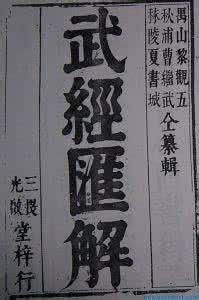 禺山黎觀五
秋浦曹繼武
秣陵夏書城
仝纂輯
武經匯解
三畏
光啟
堂梓行